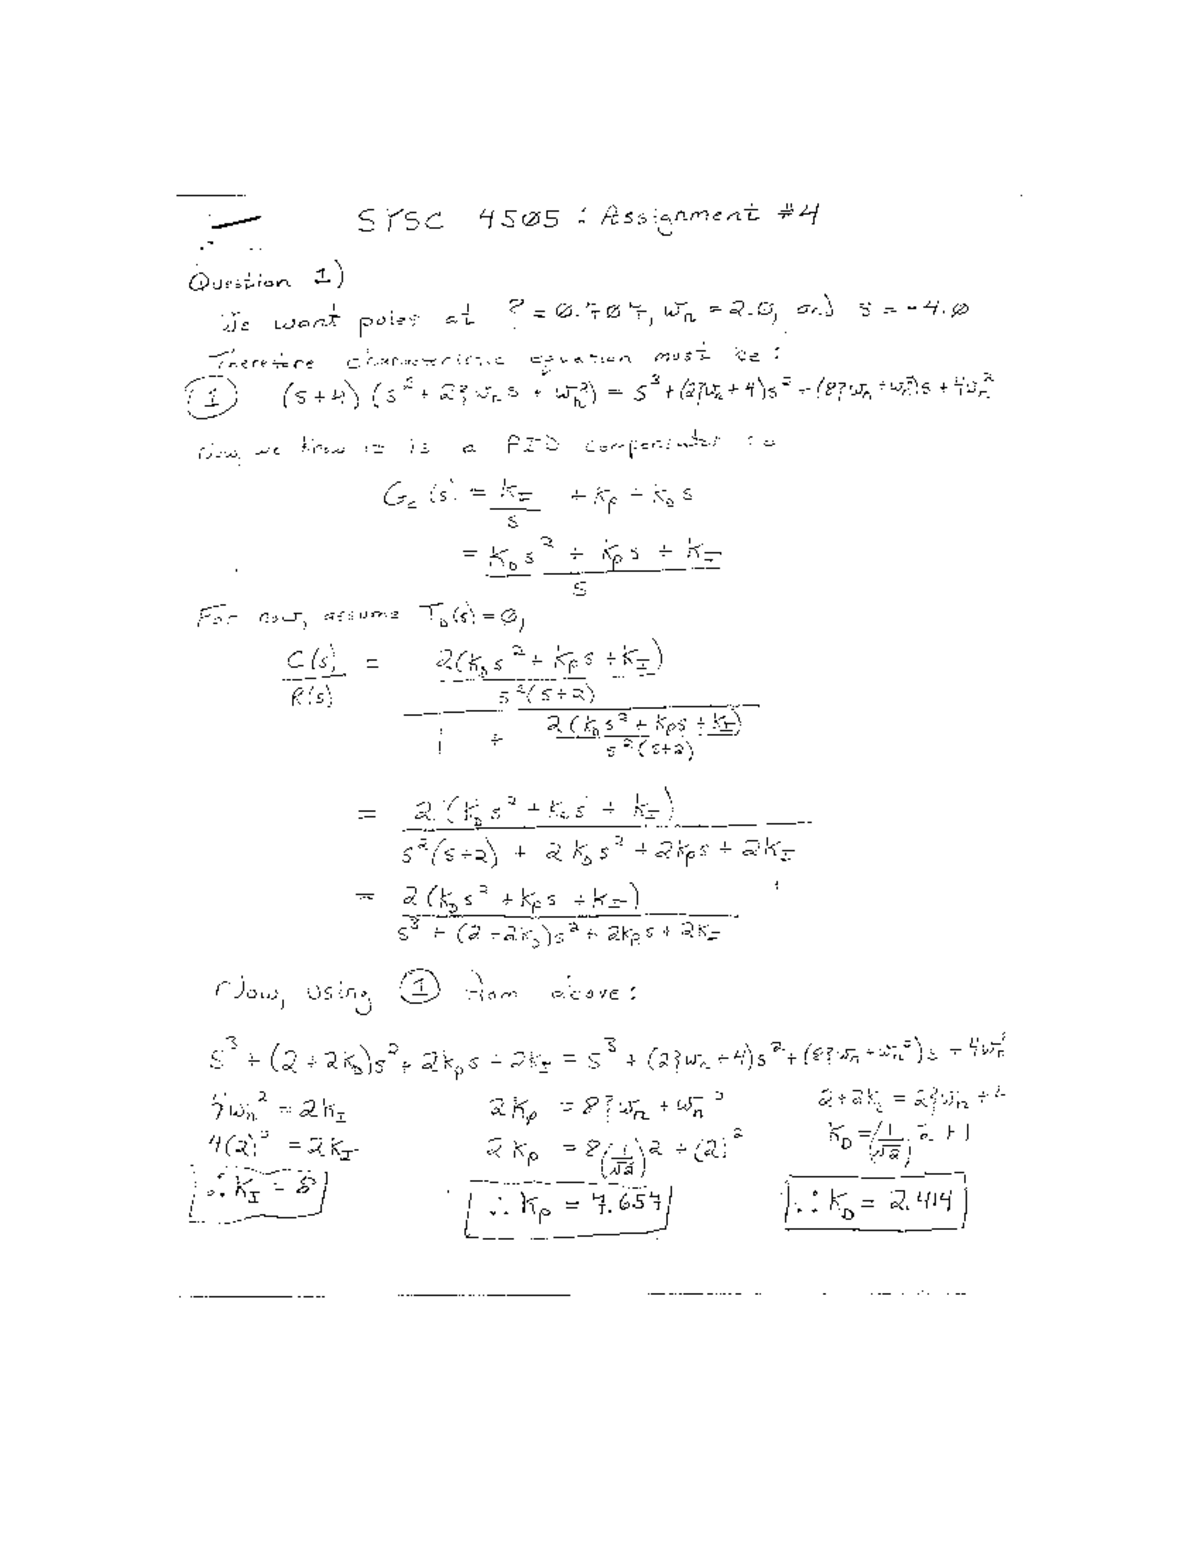 SYSC 4505 : Assignment #4
Question 1)
We want poles at ζ = 0.707, ωn = 2.0, and s = -4.0
Therefore characteristic equation must be :
① (s+4) (s² + 2ζωn s + ωn²) = s³ + (2ζωn + 4)s² + (8ζωn + ωn²)s + 4ωn²
Now, we know it is a PID compensator so
Gc(s) = KI/s + Kp + KD s
= (KD s² + Kp s + KI)/s
For now, assume TD(s) = 0,
C(s)/R(s) = [2(KD s² + Kp s + KI) / s²(s+2)] / [1 + 2(KD s² + Kp s + KI) / s²(s+2)]
= 2(KD s² + Kp s + KI) / [s²(s+2) + 2KD s² + 2Kp s + 2KI]
= 2(KD s² + Kp s + KI) / [s³ + (2+2KD)s² + 2Kp s + 2KI]
Now, using ① from above:
s³ + (2+2KD)s² + 2Kp s + 2KI = s³ + (2ζωn + 4)s² + (8ζωn + ωn²)s + 4ωn²
4ωn² = 2KI 2Kp = 8ζωn + ωn² 2+2KD = 2ζωn + 4
4(2)² = 2KI 2Kp = 8(1/√2)2 + (2)² KD = (1/√2) 2 + 1
∴ KI = 8 ∴ Kp = 7.657 ∴ KD = 2.414